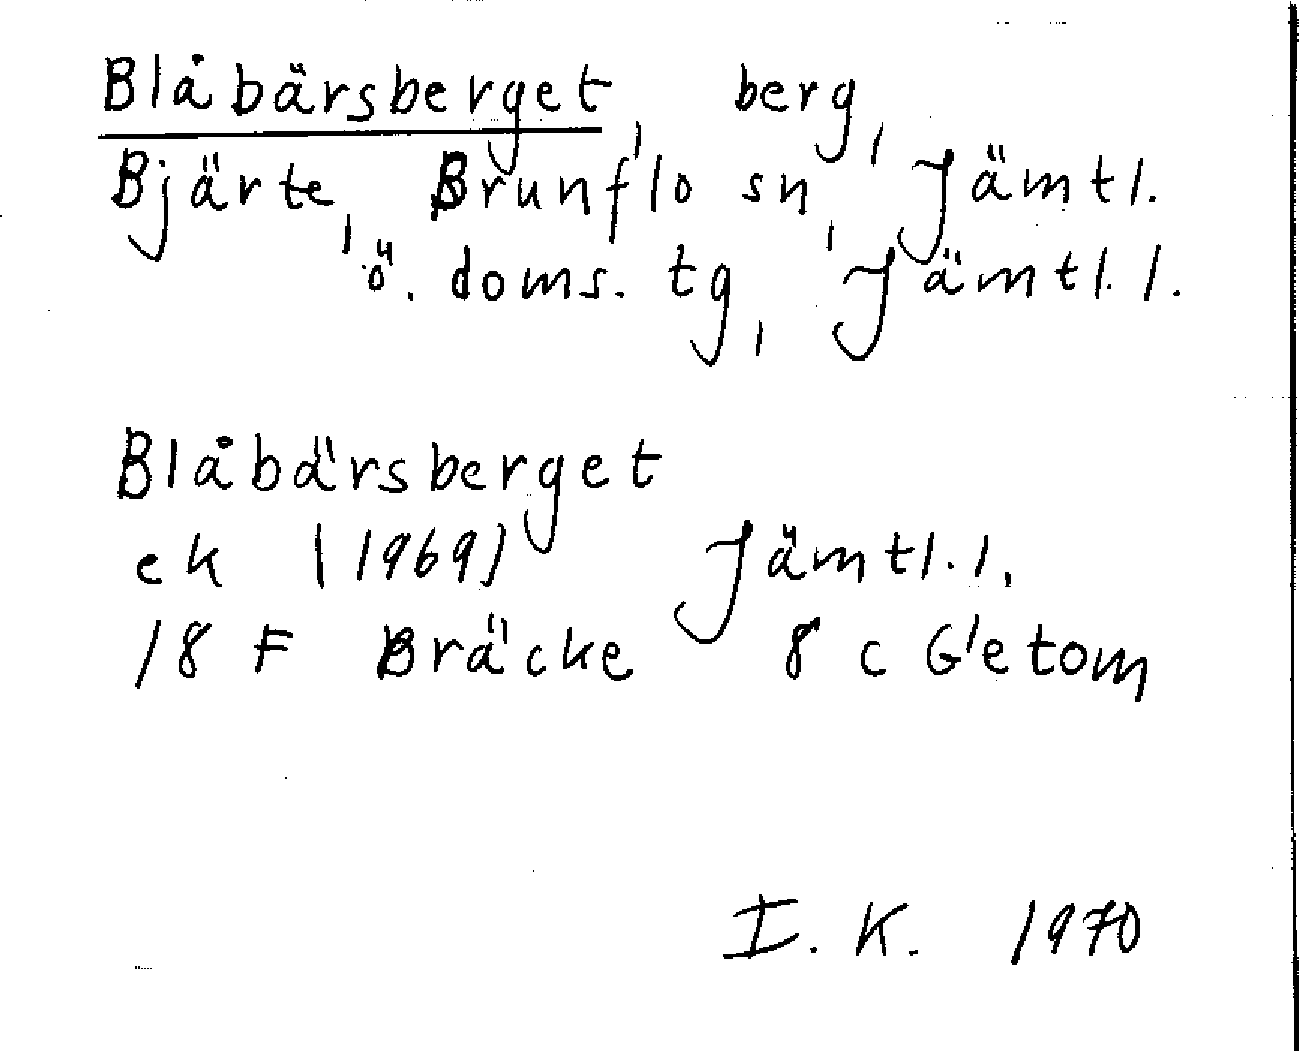 Blåbärsberget, berg,
Bjärte, Brunflo sn, Jämtl.
ö. doms. tg, Jämtl. l.
Blåbärsberget
ek (1969) Jämtl. l.
18 F Bräcke 8 c Getom
I. K. 1970